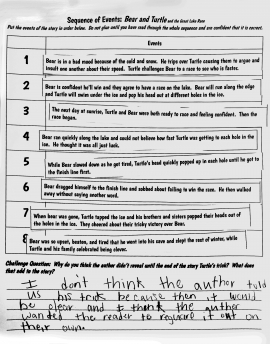 Sequence of Events: Bear and Turtle and the Great Lake Race
Put the events of the story in order below. Do not glue until you have read through the whole sequence and are confident that it is correct.
Events
1
Bear is in a bad mood because of the cold and snow. He trips over Turtle causing them to argue and
insult one another about their speed. Turtle challenges Bear to a race to see who is faster.
2
Bear is confident he'll win and they agree to have a race on the lake. Bear will run along the edge
and Turtle will swim under the ice and pop his head out at different holes in the ice.
3
The next day at sunrise, Turtle and Bear were both ready to race and feeling confident. Then the
race began.
4
Bear ran quickly along the lake and could not believe how fast Turtle was getting to each hole in the
ice. He thought it was all just luck.
5
While Bear slowed down as he got tired, Turtle's head quickly popped up in each hole until he got to
the finish line first.
6
Bear dragged himself to the finish line and sobbed about failing to win the race. He then walked
away without saying another word.
7
When bear was gone, Turtle tapped the ice and his brothers and sisters popped their heads out of
the holes in the ice. They cheered about their tricky victory over Bear.
8
Bear was so upset, beaten, and tired that he went into his cave and slept the rest of winter, while
Turtle and his family celebrated being clever.
Challenge Question: Why do you think the author didn't reveal until the end of the story Turtle's trick? What does
that add to the story?
I don't think the author told
us his trick because then it would
be clear and I think the author
wanded the reader to it out on
their own.